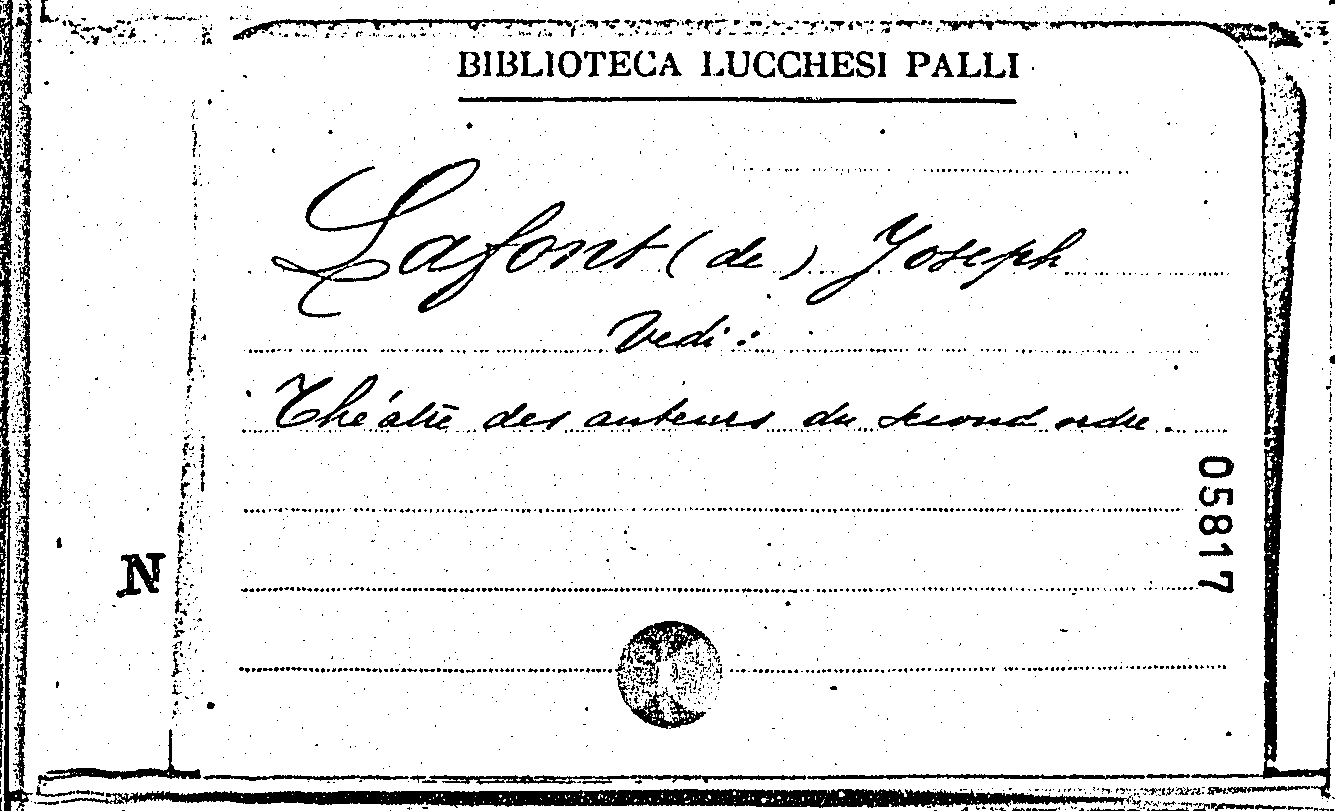 BIBLIOTECA LUCCHESI PALLI
Lafont (de) Joseph
Vedi:
Théatre des auteurs du second ordre.
05817
N